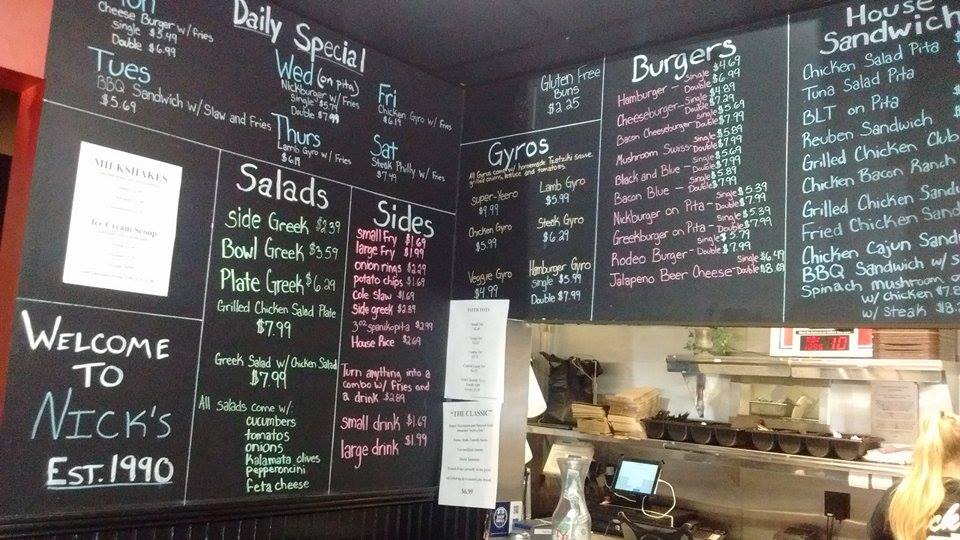 Daily Special
Mon
Cheese Burger w/ fries
Single $5.49
Double $6.99
Tues
BBQ Sandwich w/ Slaw and Fries
$5.69
Wed (on pita)
Nickburger w/ Fries
Single $5.79
Double $7.99
Thurs
Lamb Gyro w/ Fries
$6.19
Fri
Chicken Gyro w/ Fries
$6.19
Sat
Steak Philly w/ Fries
$7.49
MILKSHAKES
Ice Cream Scoop
WELCOME
TO
NICK'S
EST. 1990
Salads
Side Greek $2.39
Bowl Greek $3.59
Plate Greek $6.29
Grilled Chicken Salad Plate
$7.99
Greek Salad w/ Chicken Salad
$7.99
All Salads come w/:
cucumbers
tomatos
onions
kalamata olives
pepperoncini
feta cheese
Sides
small Fry $1.69
large Fry $1.99
onion rings $2.29
potato chips $1.69
Cole Slaw $1.69
Side greek $2.39
3oz spanikopita $2.99
House Rice $2.69
Turn anything into a
combo w/ Fries and
a drink $2.89
small drink $1.69
large drink $1.99
Gluten Free
Buns
$2.25
Gyros
All Gyros come w/ homemade Tzatziki sauce
grilled onions, lettuce and tomatoes.
super-Yeero
$9.99
Lamb Gyro
$5.99
Chicken Gyro
$5.99
Steak Gyro
$6.29
Veggie Gyro
$4.99
Hamburger Gyro
Single $5.99
Double $7.99
TATER TOTS
"THE CLASSIC"
$6.99
Burgers
Hamburger - Single $4.69
Double $6.99
Cheeseburger - Single $4.89
Double $7.29
Bacon Cheeseburger - Single $5.69
Double $7.99
Mushroom Swiss - Single $5.89
Double $7.99
Black and Blue - Single $5.69
Double $7.99
Bacon Blue - Single $5.89
Double $7.99
Nickburger on Pita - Single $5.39
Double $7.99
Greekburger on Pita - Single $5.39
Double $7.99
Rodeo Burger - Single $5.79
Double $7.99
Jalapeno Beer Cheese - Single $6.49
Double $8.69
House
Sandwich
Chicken Salad Pita
Tuna Salad Pita
BLT on Pita
Reuben Sandwich
Grilled Chicken Club
Chicken Bacon Ranch
Grilled Chicken Sand
Fried Chicken Sand
Chicken Cajun Sand
BBQ Sandwich w/ s
Spinach mushroom
w/ chicken $7.8
w/ steak $8.2
10